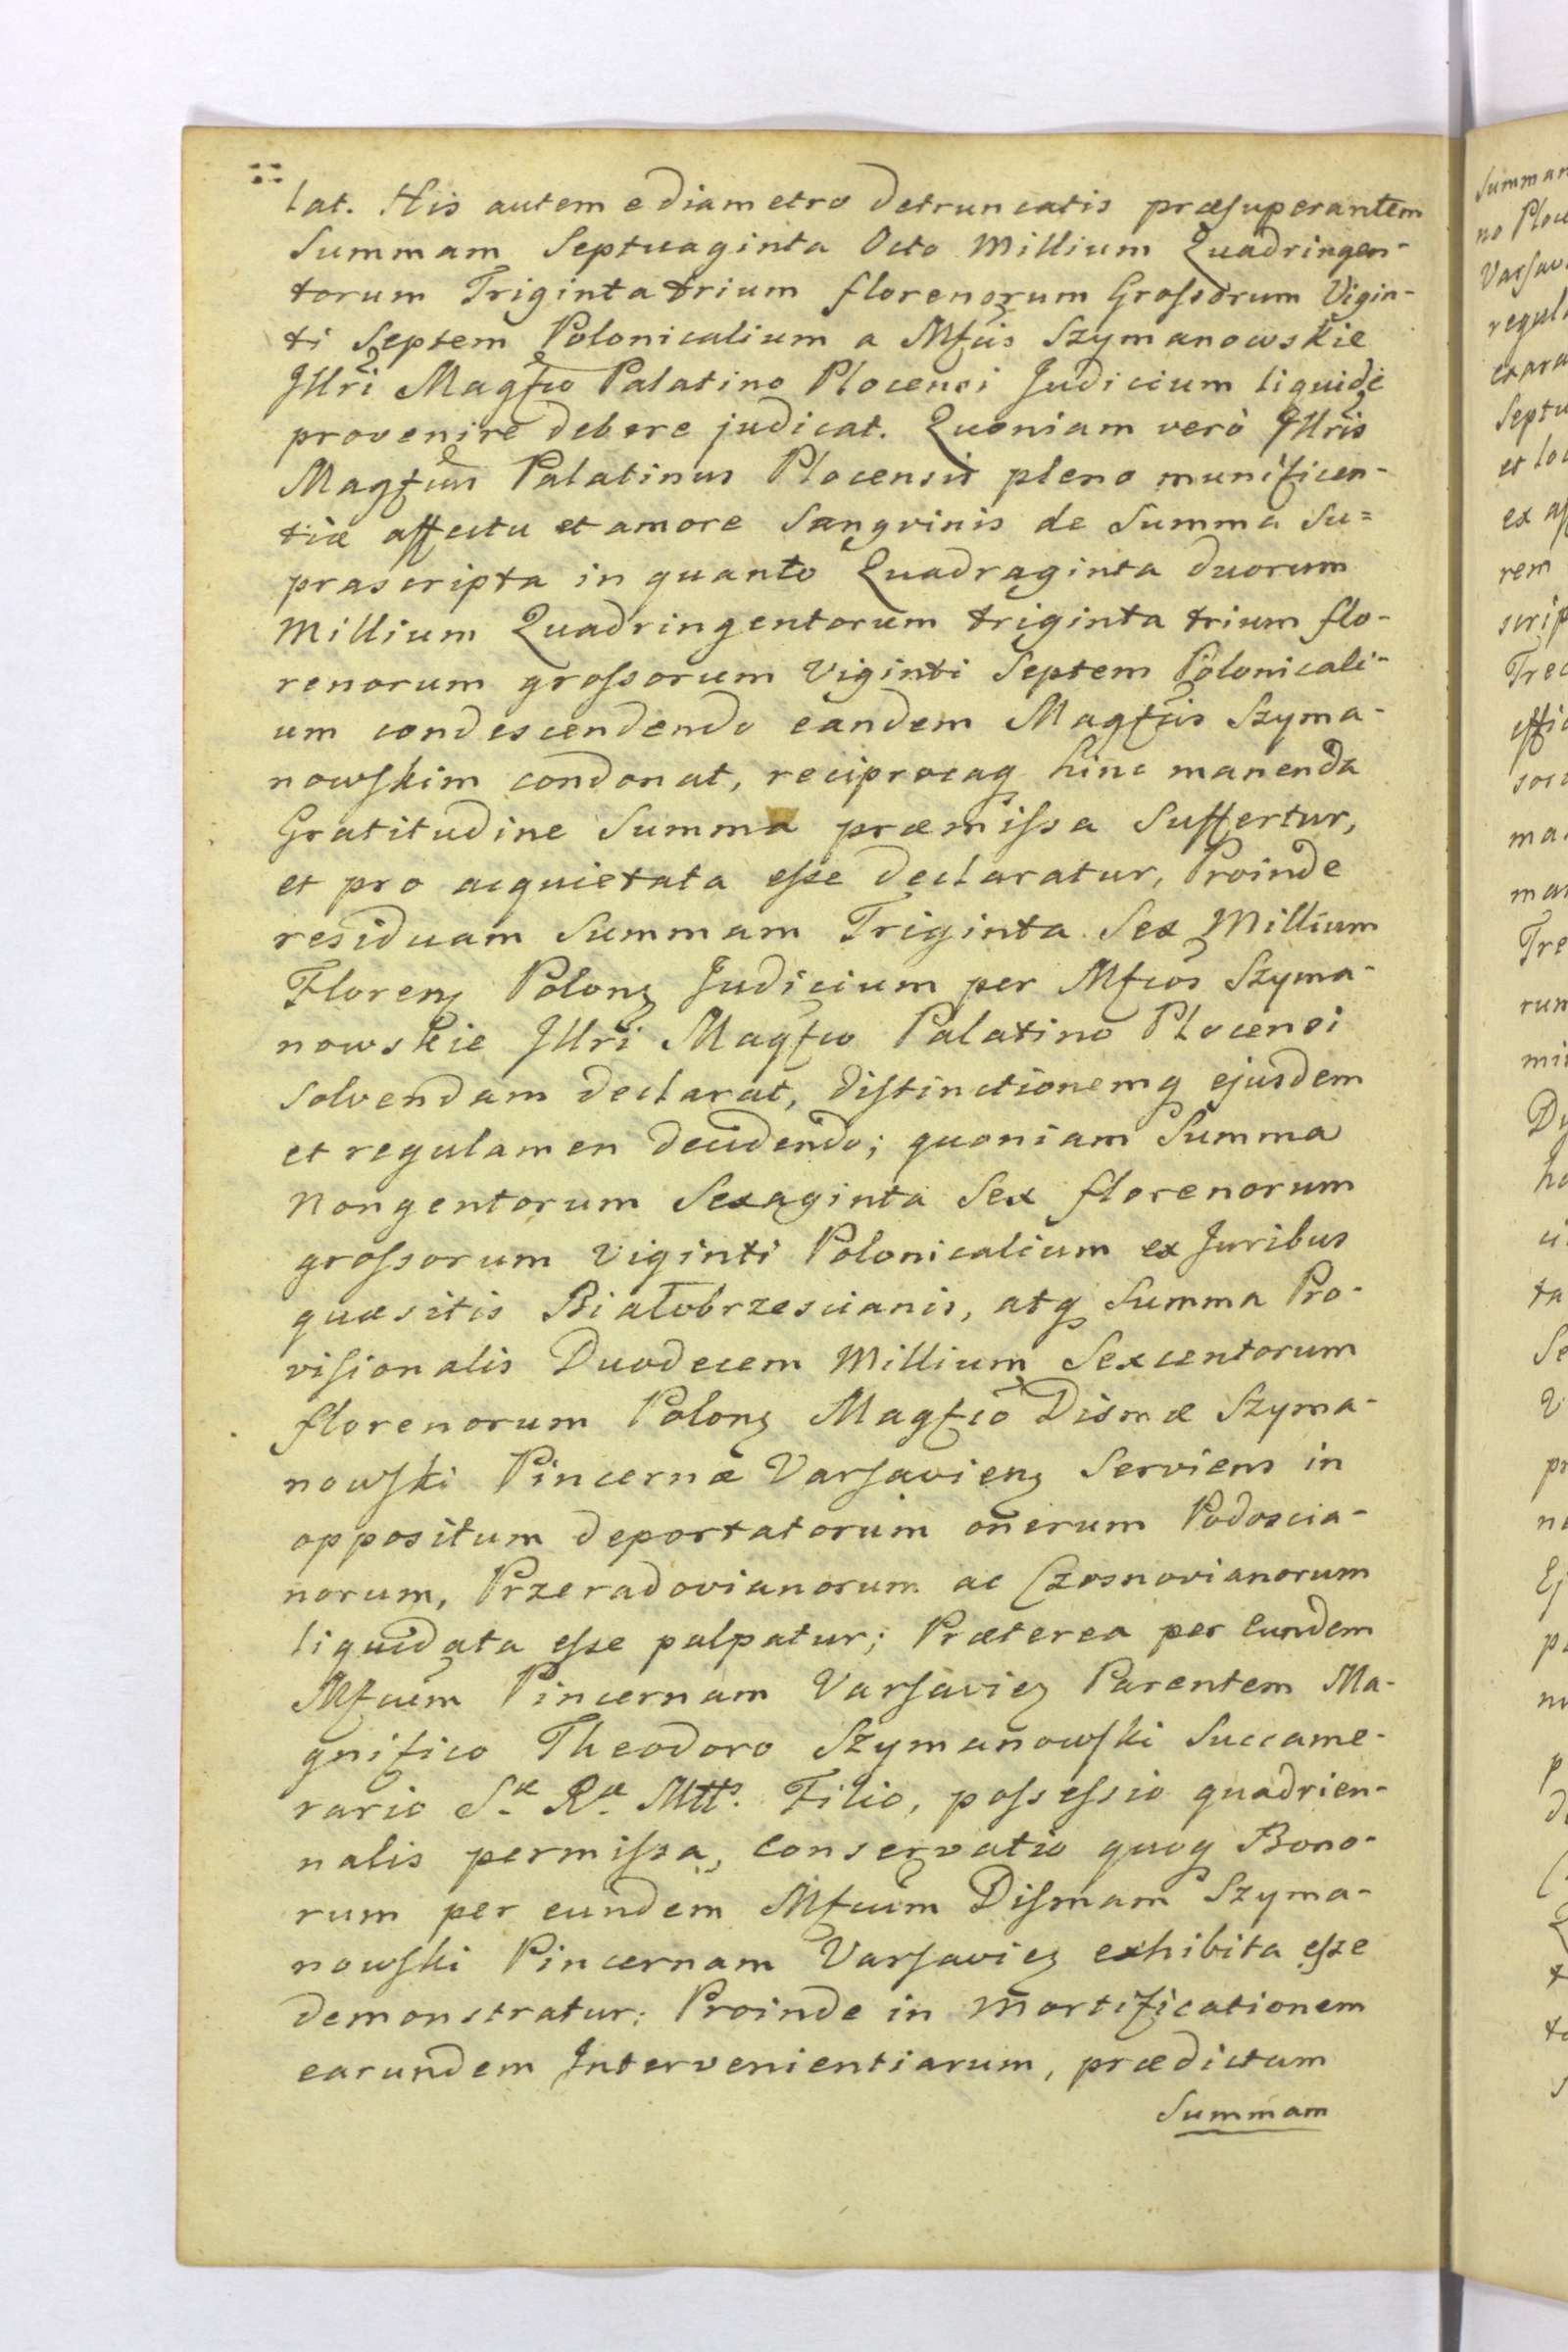 lat. His autem e diametro detruncatis præsuperantem
Summam Septuaginta Octo Millium Quadringen-
torum Triginta trium florenorum Grossorum Vigin-
ti Septem Polonicalium a Mfcis Szymanowskie
Illri Magfco Palatino Plocensi Judicium liquide
provenire debere judicat. Quoniam verò Illris
Magfcus Palatinus Plocensis pleno munificen-
tiæ affectu et amore Sangvinis de Summa Su=
prascripta in quanto Quadraginta duorum
Millium Quadringentorum triginta trium flo-
renorum grossorum Viginti Septem Polonicali-
um condescendendo eandem Magfcis Szyma-
nowskim condonat, reciprocaq hinc manenda
Gratitudine Summa præmissa Suffertur,
et pro acquietata esse declaratur, Proinde
residuam Summam Triginta Sex Millium
Floren Polon Judicium per Mfcos Szyma-
nowskie Illri Magfco Palatino Plocensi
Solvendam declarat, distinctionemq ejusdem
et regulamen decidendo; quoniam Summa
Nongentorum Sexaginta Sex florenorum
grossorum Viginti Polonicalium ex Juribus
quæsitis Białobrzescianis, atq Summa Pro-
visionalis Duodecem Millium Sexcentorum
florenorum Polon Magfco Dismæ Szyma-
nowski Pincernæ Varsavien Serviens in
oppositum deportatorum onerum Podoscia-
norum, Przeradovianorum ac Czosnovianorum
liquidata esse palpatur; Præterea per Eundem
Mfcum Pincernam Varsavien Parentem Ma-
gnifico Theodoro Szymanowski Succame-
rario Sæ Ræ Mtts. Filio, possessio quadrien-
nalis permissa, Conservatio quoq Bono-
rum per eundem Mfcum Dismam Szyma-
nowski Pincernam Varsavien exhibita esse
demonstratur: Proinde in Mortificationem
earundem Intervenientiarum, prædictam
Summam